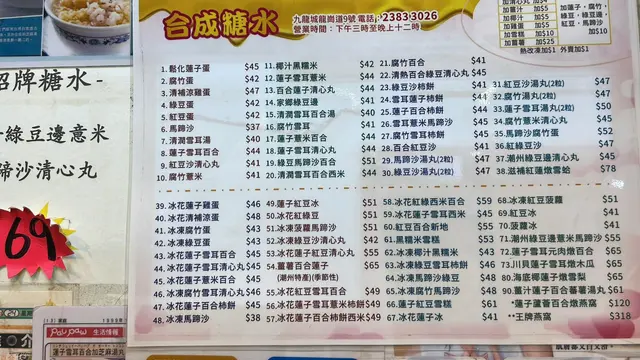 合成糖水
九龍城龍崗道9號 電話:2383 3026
營業時間:下午三時至晚上十二時
加薑汁 $5
加椰汁 $5
加雪糕 $10
加雪蛤 $50
加薑薯 $25
蓮子,百合,
綠豆,綠豆邊,
紅豆 $10
熱改凍加$1 外賣加$1
招牌糖水-
綠豆邊意米
蹄沙清心丸
69
1. 鬆化蓮子蛋 $45
2. 腐竹蛋 $42
4. 綠豆蛋 $42
5. 紅豆蛋 $42
6. 馬蹄沙 $37
7. 清潤雪耳湯 $40
8. 蓮子雪耳百合 $44
9. 紅豆沙清心丸 $41
10. 腐竹薏米 $41
11. 椰汁黑糯米 $42
12. 椰汁雪耳薏米 $44
13. 百合蓮子清心丸 $44
14. 家鄉綠豆邊 $41
15. 百合蓮子湯 $40
16. 腐竹雪耳 $41
17. 蓮子薏米百合 $44
18. 蓮子雪耳清心丸 $44
19. 綠豆馬蹄沙百合 $51
20. 清潤雪耳百合西米 $44
21. 腐竹百合 $41
22. 清熱百合綠豆清心丸 $45
23. 綠豆沙柿餅
24. 雪耳蓮子柿餅
25. 蓮子百合柿餅
26. 雪耳薏米馬蹄沙
27. 腐竹雪耳柿餅
28. 百合紅豆沙
29. 馬蹄沙湯丸(2粒) $47
30. 綠豆沙湯丸(2粒) $47
31. 紅豆沙湯丸(2粒) $47
32. 腐竹湯丸(2粒) $47
33. 蓮子雪耳湯丸(2粒) $50
34. 雪耳腐竹清心丸 $45
35. 馬蹄沙腐竹蛋 $52
36. 紅綠豆沙 $47
37. 潮州綠豆邊清心丸 $45
38. 滋補紅蓮燉雪蛤 $78
39. 冰花蓮子雞蛋 $46
40. 冰凍清補涼 $48
41. 冰凍腐竹蛋 $43
42. 冰凍綠豆蛋 $43
43. 冰花蓮子雪耳百合 $45
44. 冰花蓮子雪耳清心丸 $45
45. 冰花蓮子薏米百合 $45
46. 冰凍腐竹雪耳清心丸 $46
47. 冰花蓮子雪耳薏米 $45
48. 冰凍馬蹄沙 $38
49. 冰花蓮子紅豆 $51
50. 冰花紅綠豆 $51
51. 冰凍菠蘿馬蹄沙 $51
52. 冰凍綠豆沙清心丸 $42
53. 冰花蓮子綠豆 $51
54. 薑薯百合蓮子 $65
(潮州特產)(季節性)
55. 冰凍綠豆雪耳百合 $51
56. 冰花蓮子雪耳薏米柿餅 $49
57. 冰花蓮子百合柿餅西米 $49
58. 冰花紅綠西米百合 $59
59. 冰花蓮子雪耳西米 $45
60. 紅豆百合新地 $55
61. 黑糯米雪糕 $53
62. 冰凍椰汁黑糯米 $43
63. 冰凍綠豆雪耳柿餅 $52
64. 冰凍馬蹄沙綠豆 $48
65. 冰凍腐竹馬蹄沙 $48
66. 冰花蓮子雪糕 $61
67. 冰花蓮子冰 $41
68. 冰凍紅豆菠蘿 $51
69. 紅豆冰 $41
70. 菠蘿冰 $41
71. 潮州綠豆邊薏米馬蹄沙 $55
72. 蓮子雪耳元肉燉百合 $61
73. 川貝蓮子雪耳燉木瓜 $65
80. 海底椰蓮子燉雪梨 $65
90. 薑汁蓮子百合蕃薯湯丸 $61
*蓮子蘆薈百合燉燕窩 $120
**王牌燕窩 $318
生活情報
蓮子雪耳百合加芝麻湯丸